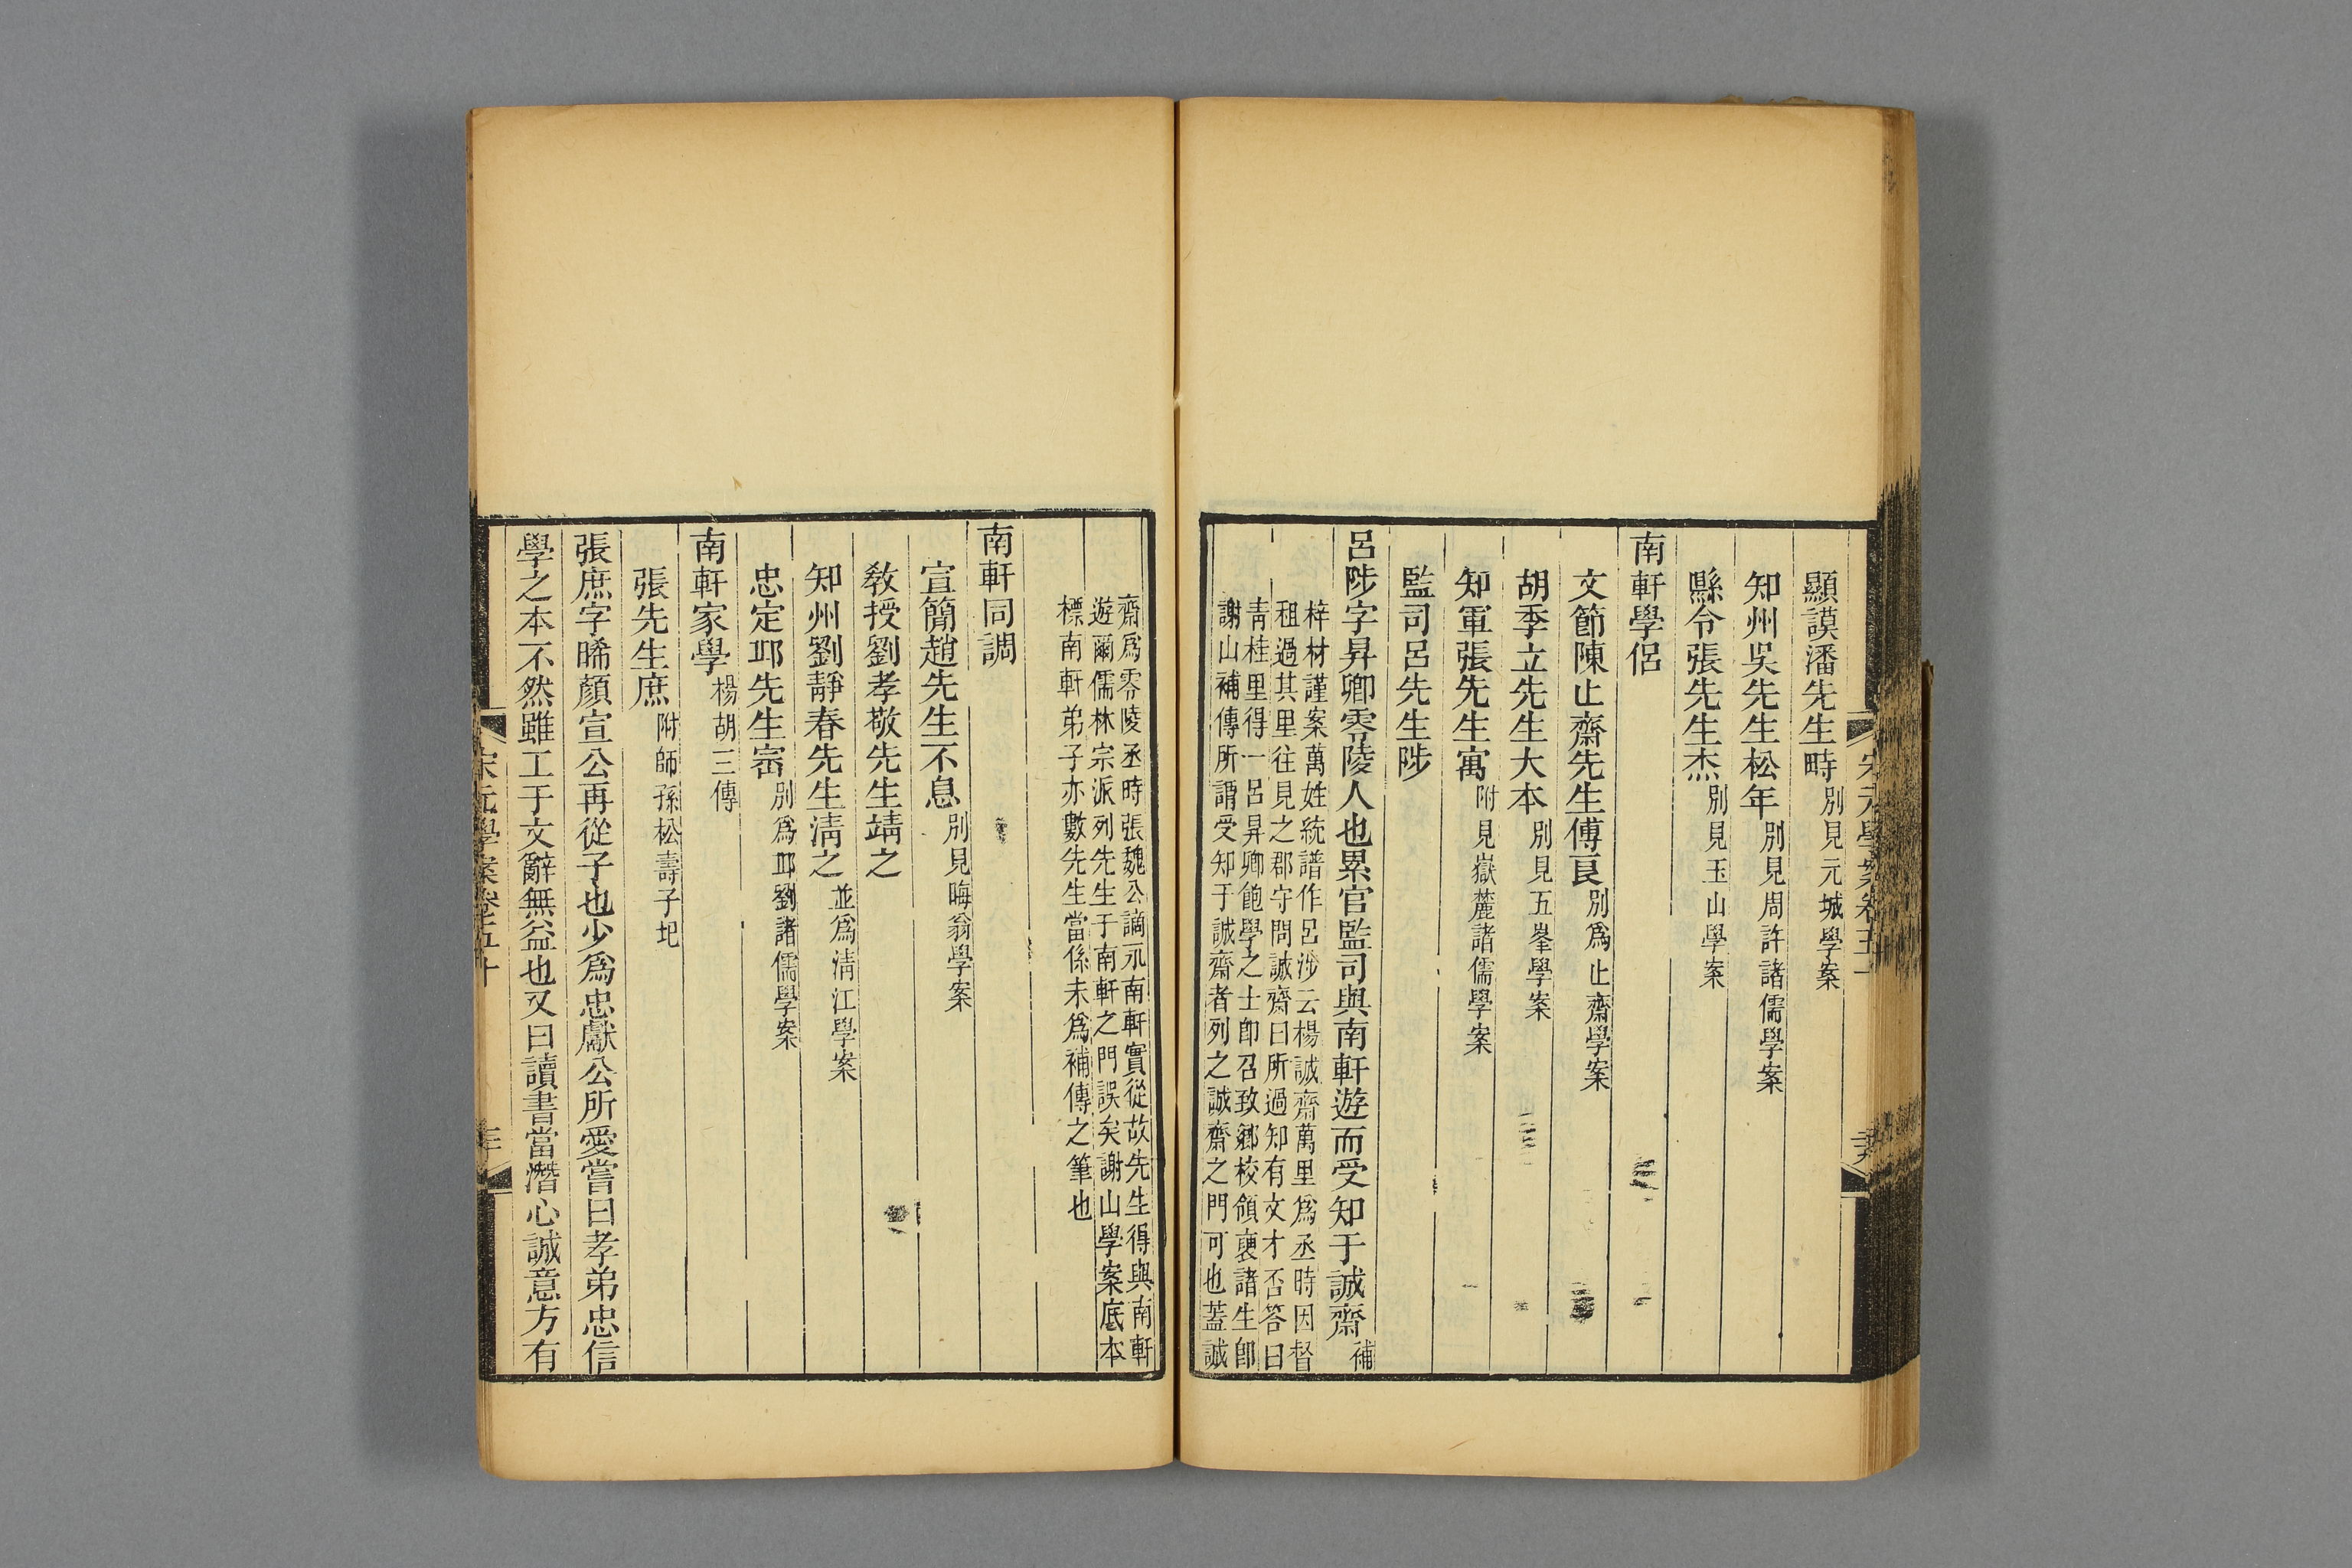 顯謨潘先生畤別見元城學案
知州吳先生松年別見周許諸儒學案
縣令張先生杰別見玉山學案
南軒學侶
文節陳止齋先生傅良別爲止齋學案
胡季立先生大本別見五峯學案
知軍張先生寓附見嶽麓諸儒學案
監司呂先生陟
呂陟字昇卿零陵人也累官監司與南軒遊而受知于誠齋補
梓材謹案萬姓統譜作呂涉云楊誠齋萬里爲丞時因督
租過其里往見之郡守問誠齋曰所過知有文才否答曰
青桂里得一呂昇卿飽學之士卽召致鄉校領袖諸生卽
謝山補傳所謂受知于誠齋者列之誠齋之門可也蓋誠
齋爲零陵丞時張魏公謫永南軒實從故先生得與南軒
遊爾儒林宗派列先生于南軒之門誤矣謝山學案底本
標南軒弟子亦數先生當係未爲補傳之筆也
南軒同調
宣簡趙先生不息別見晦翁學案
教授劉孝敬先生靖之
知州劉靜春先生淸之並爲淸江學案
忠定邱先生崈別爲邱劉諸儒學案
南軒家學楊胡三傳
張先生庶附師孫松壽子圯
張庶字晞顏宣公再從子也少爲忠獻公所愛嘗曰孝弟忠信
學之本不然雖工于文辭無益也又曰讀書當潛心誠意方有
宋元學案卷五十